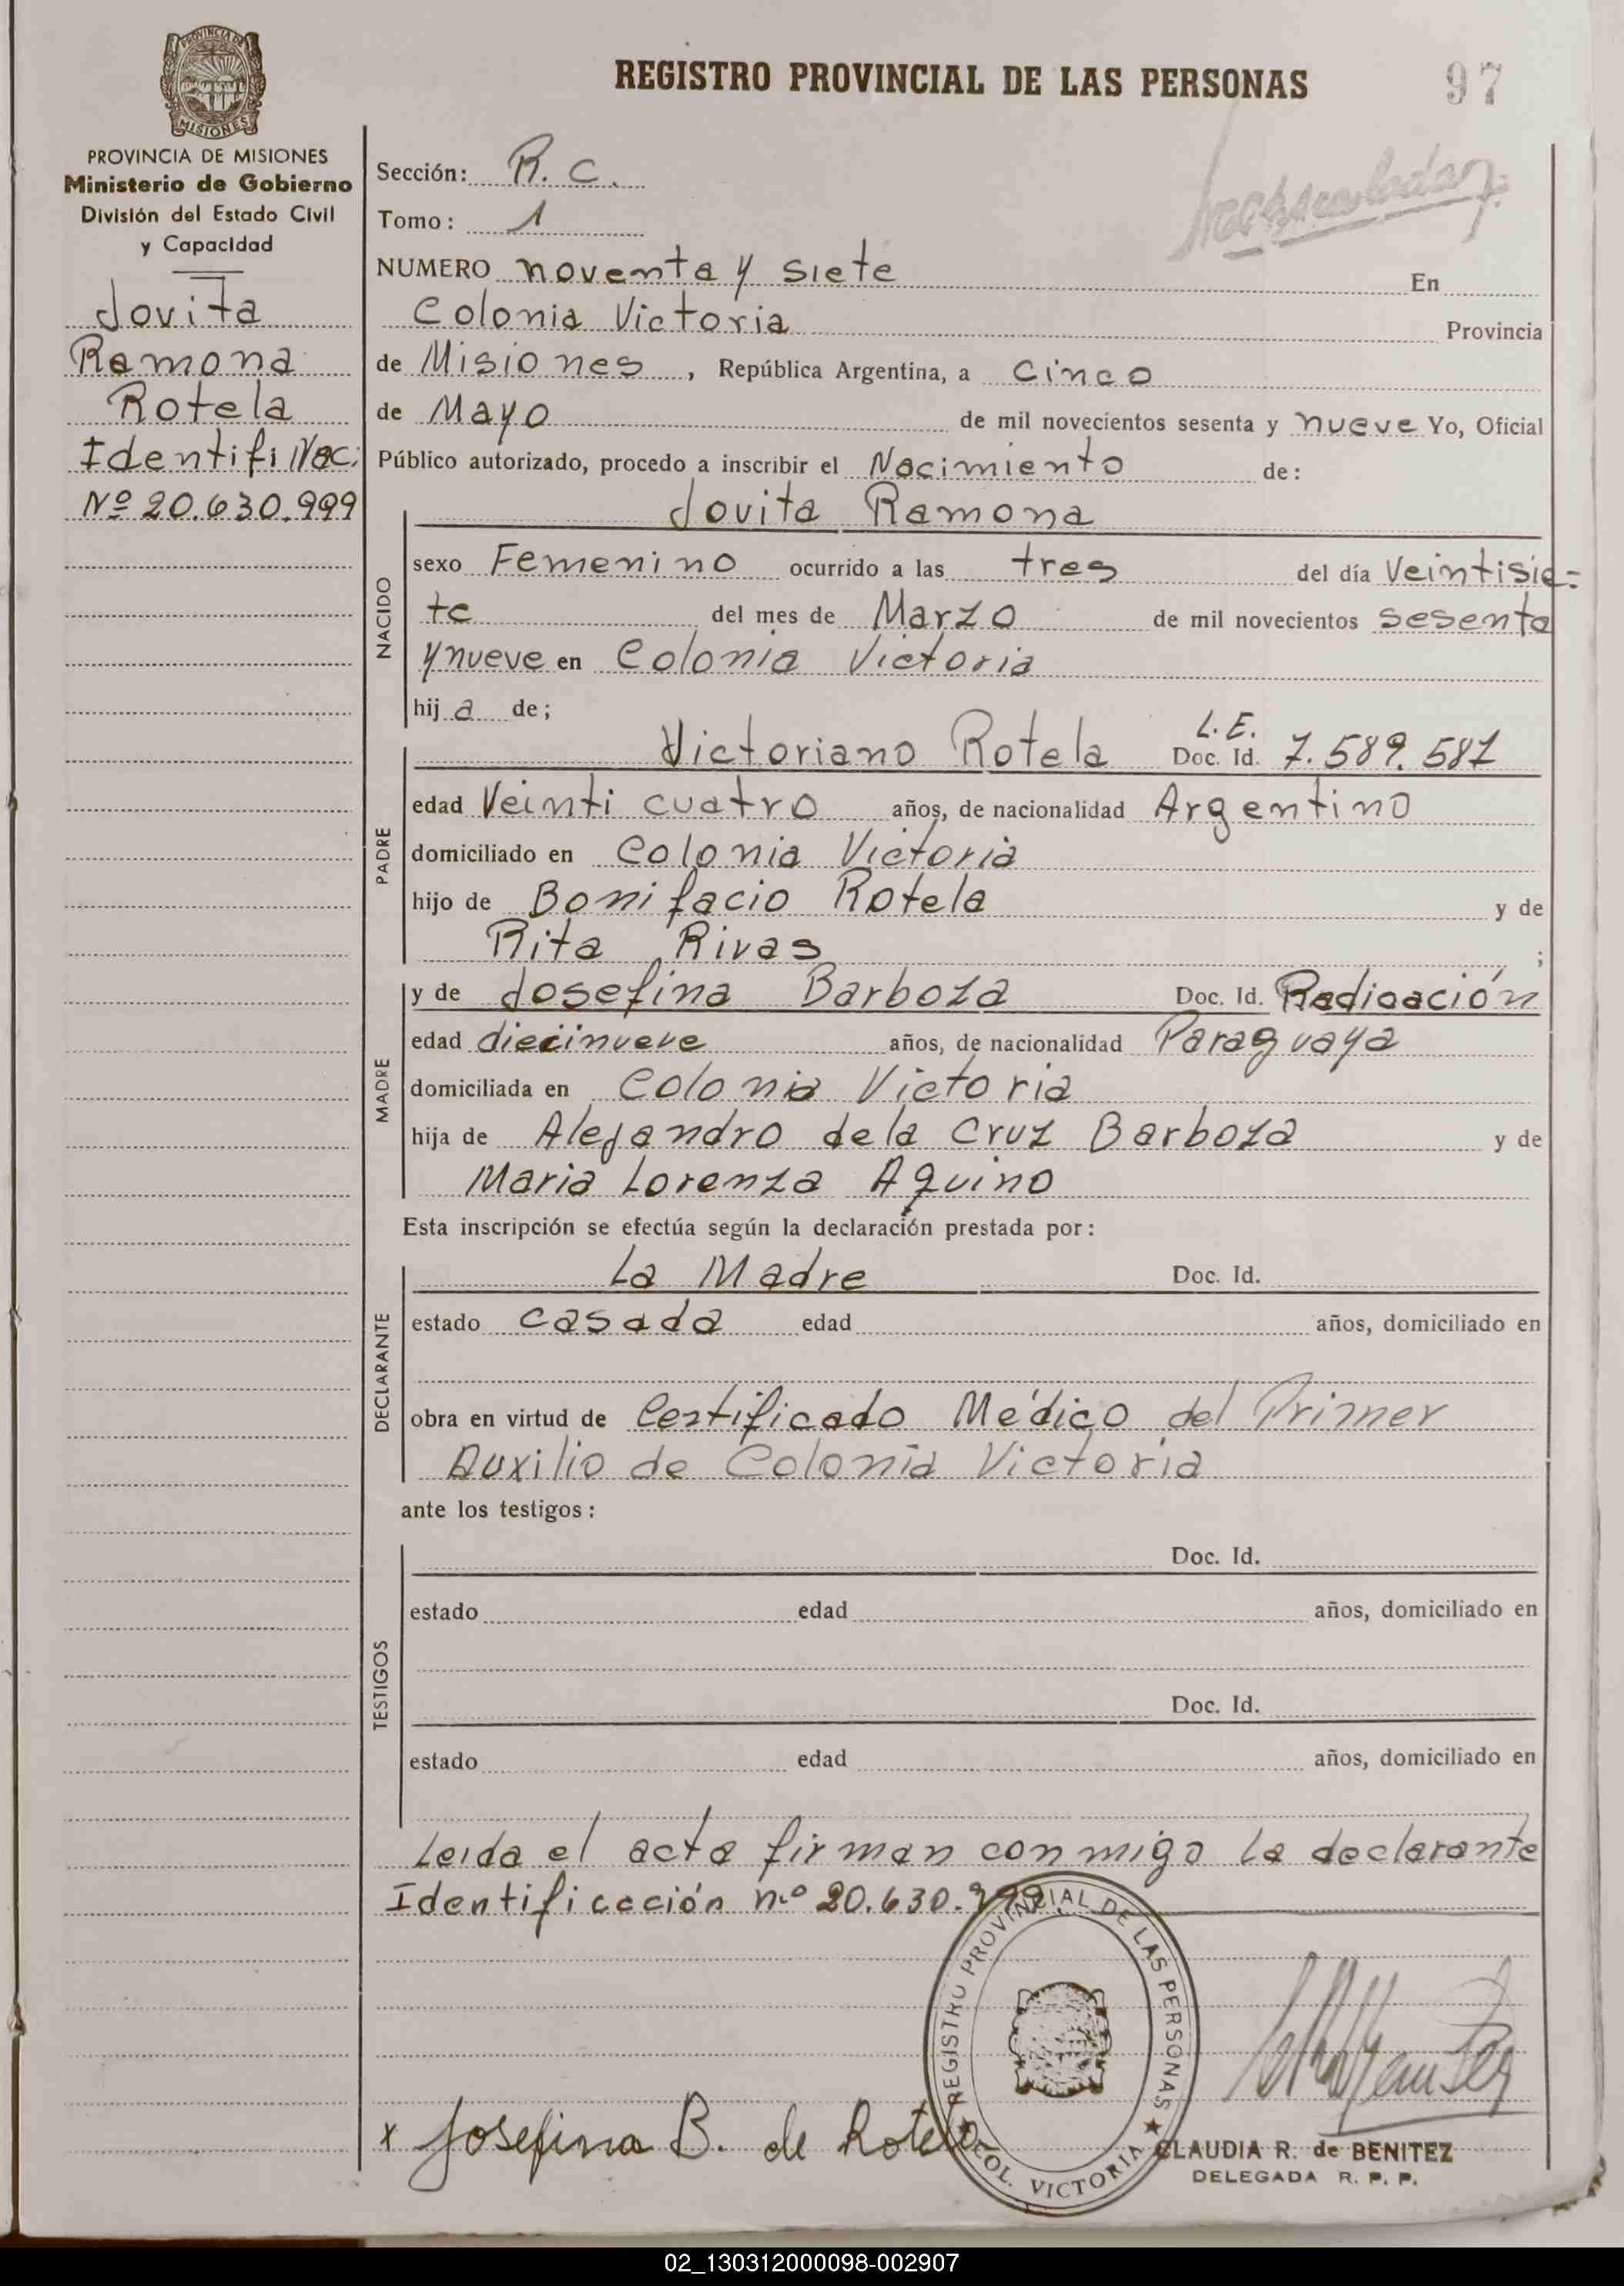 PROVINCIA DE
MISIONES
PROVINCIA DE MISIONES
Ministerio de Gobierno
División del Estado Civil
y Capacidad
Jovita
Ramona
Rotela
Identifi Nac.
Nº 20.630.999
REGISTRO PROVINCIAL DE LAS PERSONAS
97
Sección: R. C.
Tomo: 1
NUMERO noventa y siete En
Colonia Victoria Provincia
de Misiones, República Argentina, a cinco
de Mayo de mil novecientos sesenta y nueve Yo, Oficial
Público autorizado, procedo a inscribir el Nacimiento de:
Jovita Ramona
NACIDO
sexo Femenino ocurrido a las tres del día Veintisie=
te del mes de Marzo de mil novecientos sesenta
y nueve en Colonia Victoria
hija de;
PADRE
Victoriano Rotela L.E. Doc. Id. 7.589.581
edad Veinti cuatro años, de nacionalidad Argentino
domiciliado en Colonia Victoria
hijo de Bonifacio Rotela y de
Rita Rivas ;
MADRE
y de Josefina Barboza Doc. Id. Radicación
edad diecinueve años, de nacionalidad Paraguaya
domiciliada en Colonia Victoria
hija de Alejandro dela Cruz Barboza y de
Maria Lorenza Aquino
Esta inscripción se efectúa según la declaración prestada por:
DECLARANTE
La Madre Doc. Id.
estado casada edad años, domiciliado en
obra en virtud de Certificado Médico del Primer
Auxilio de Colonia Victoria
ante los testigos:
TESTIGOS
Doc. Id.
estado edad años, domiciliado en
Doc. Id.
estado edad años, domiciliado en
Leida el acta firman conmigo la declarante
Identificación n.º 20.630.999
REGISTRO PROVINCIAL DE LAS PERSONAS
COL. VICTORIA
x Josefina B. de Rotela
CLAUDIA R. de BENITEZ
DELEGADA R. P. P.
02_130312000098-002907